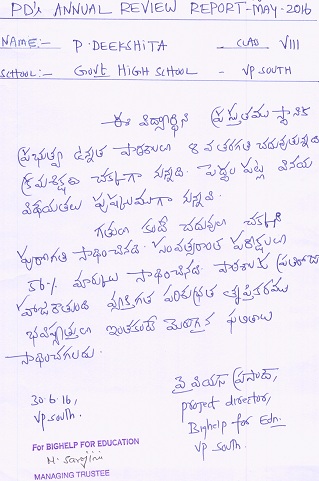 PD's ANNUAL REVIEW REPORT-MAY-2016
NAME:- P. DEEKSHITA CLASS VIII
SCHOOL:- Govt HIGH SCHOOL - VP SOUTH
ఈ విద్యార్థిని ప్రస్తుతము స్థానిక
ప్రభుత్వ ఉన్నత పాఠశాలలో 8 వ తరగతి చదువుతున్నది
క్రమశిక్షణ చక్కగా నున్నది. పెద్దల పట్ల వినయ
విధేయతలు పుష్కలముగా నున్నవి.
గతం కంటే చదువులో చక్కని
పురోగతి సాధించినది. సంవత్సరాంత పరీక్షలలో
మార్కులు సాధించినది. పాఠశాలకు ప్రతిరోజు
వ్యక్తిగత పరిశుభ్రత తృప్తికరము
భవిష్యత్తులో ఇంతకంటే మెరుగైన ఫలితాలు
సాధించగలదు.
30.6.16,
VP South.
ప్రసాద్,
project director,
Bighelp for Edn.
VP South.
For BIGHELP FOR EDUCATION
N. Sarojini
MANAGING TRUSTEE